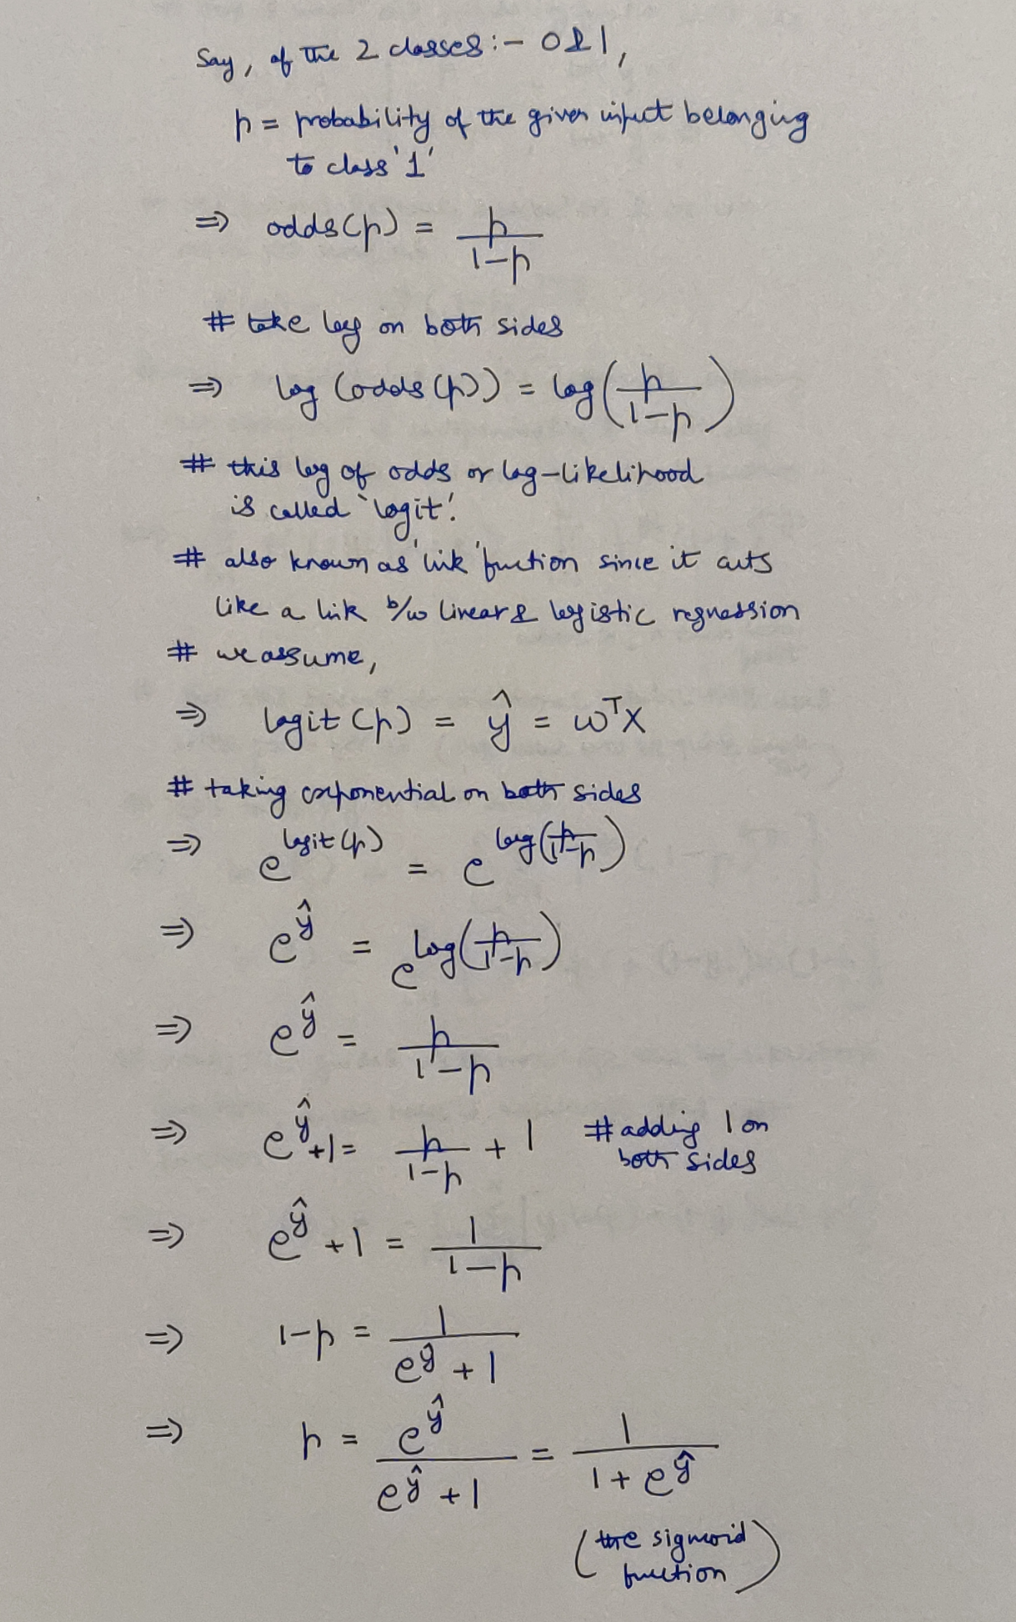 Say, of the 2 classes:- 0 & 1,
p = probability of the given input belonging
to class '1'
⇒ odds(p) = p/(1-p)
# take log on both sides
⇒ log (odds(p)) = log(p/(1-p))
# this log of odds or log-likelihood
is called 'logit'.
# also known as 'link' function since it acts
like a link b/w linear & logistic regression
# we assume,
⇒ logit(p) = ŷ = wᵀX
# taking exponential on both sides
⇒ e^logit(p) = e^log(p/(1-p))
⇒ e^ŷ = e^log(p/(1-p))
⇒ e^ŷ = p/(1-p)
⇒ e^ŷ +1 = p/(1-p) + 1 # adding 1 on
both sides
⇒ e^ŷ + 1 = 1/(1-p)
⇒ 1-p = 1/(e^ŷ + 1)
⇒ p = e^ŷ/(e^ŷ + 1) = 1/(1 + e^ŷ)
(the sigmoid
function)